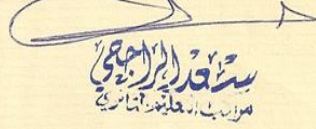 سعد الراجحي
مراقب التعليم الثانوي